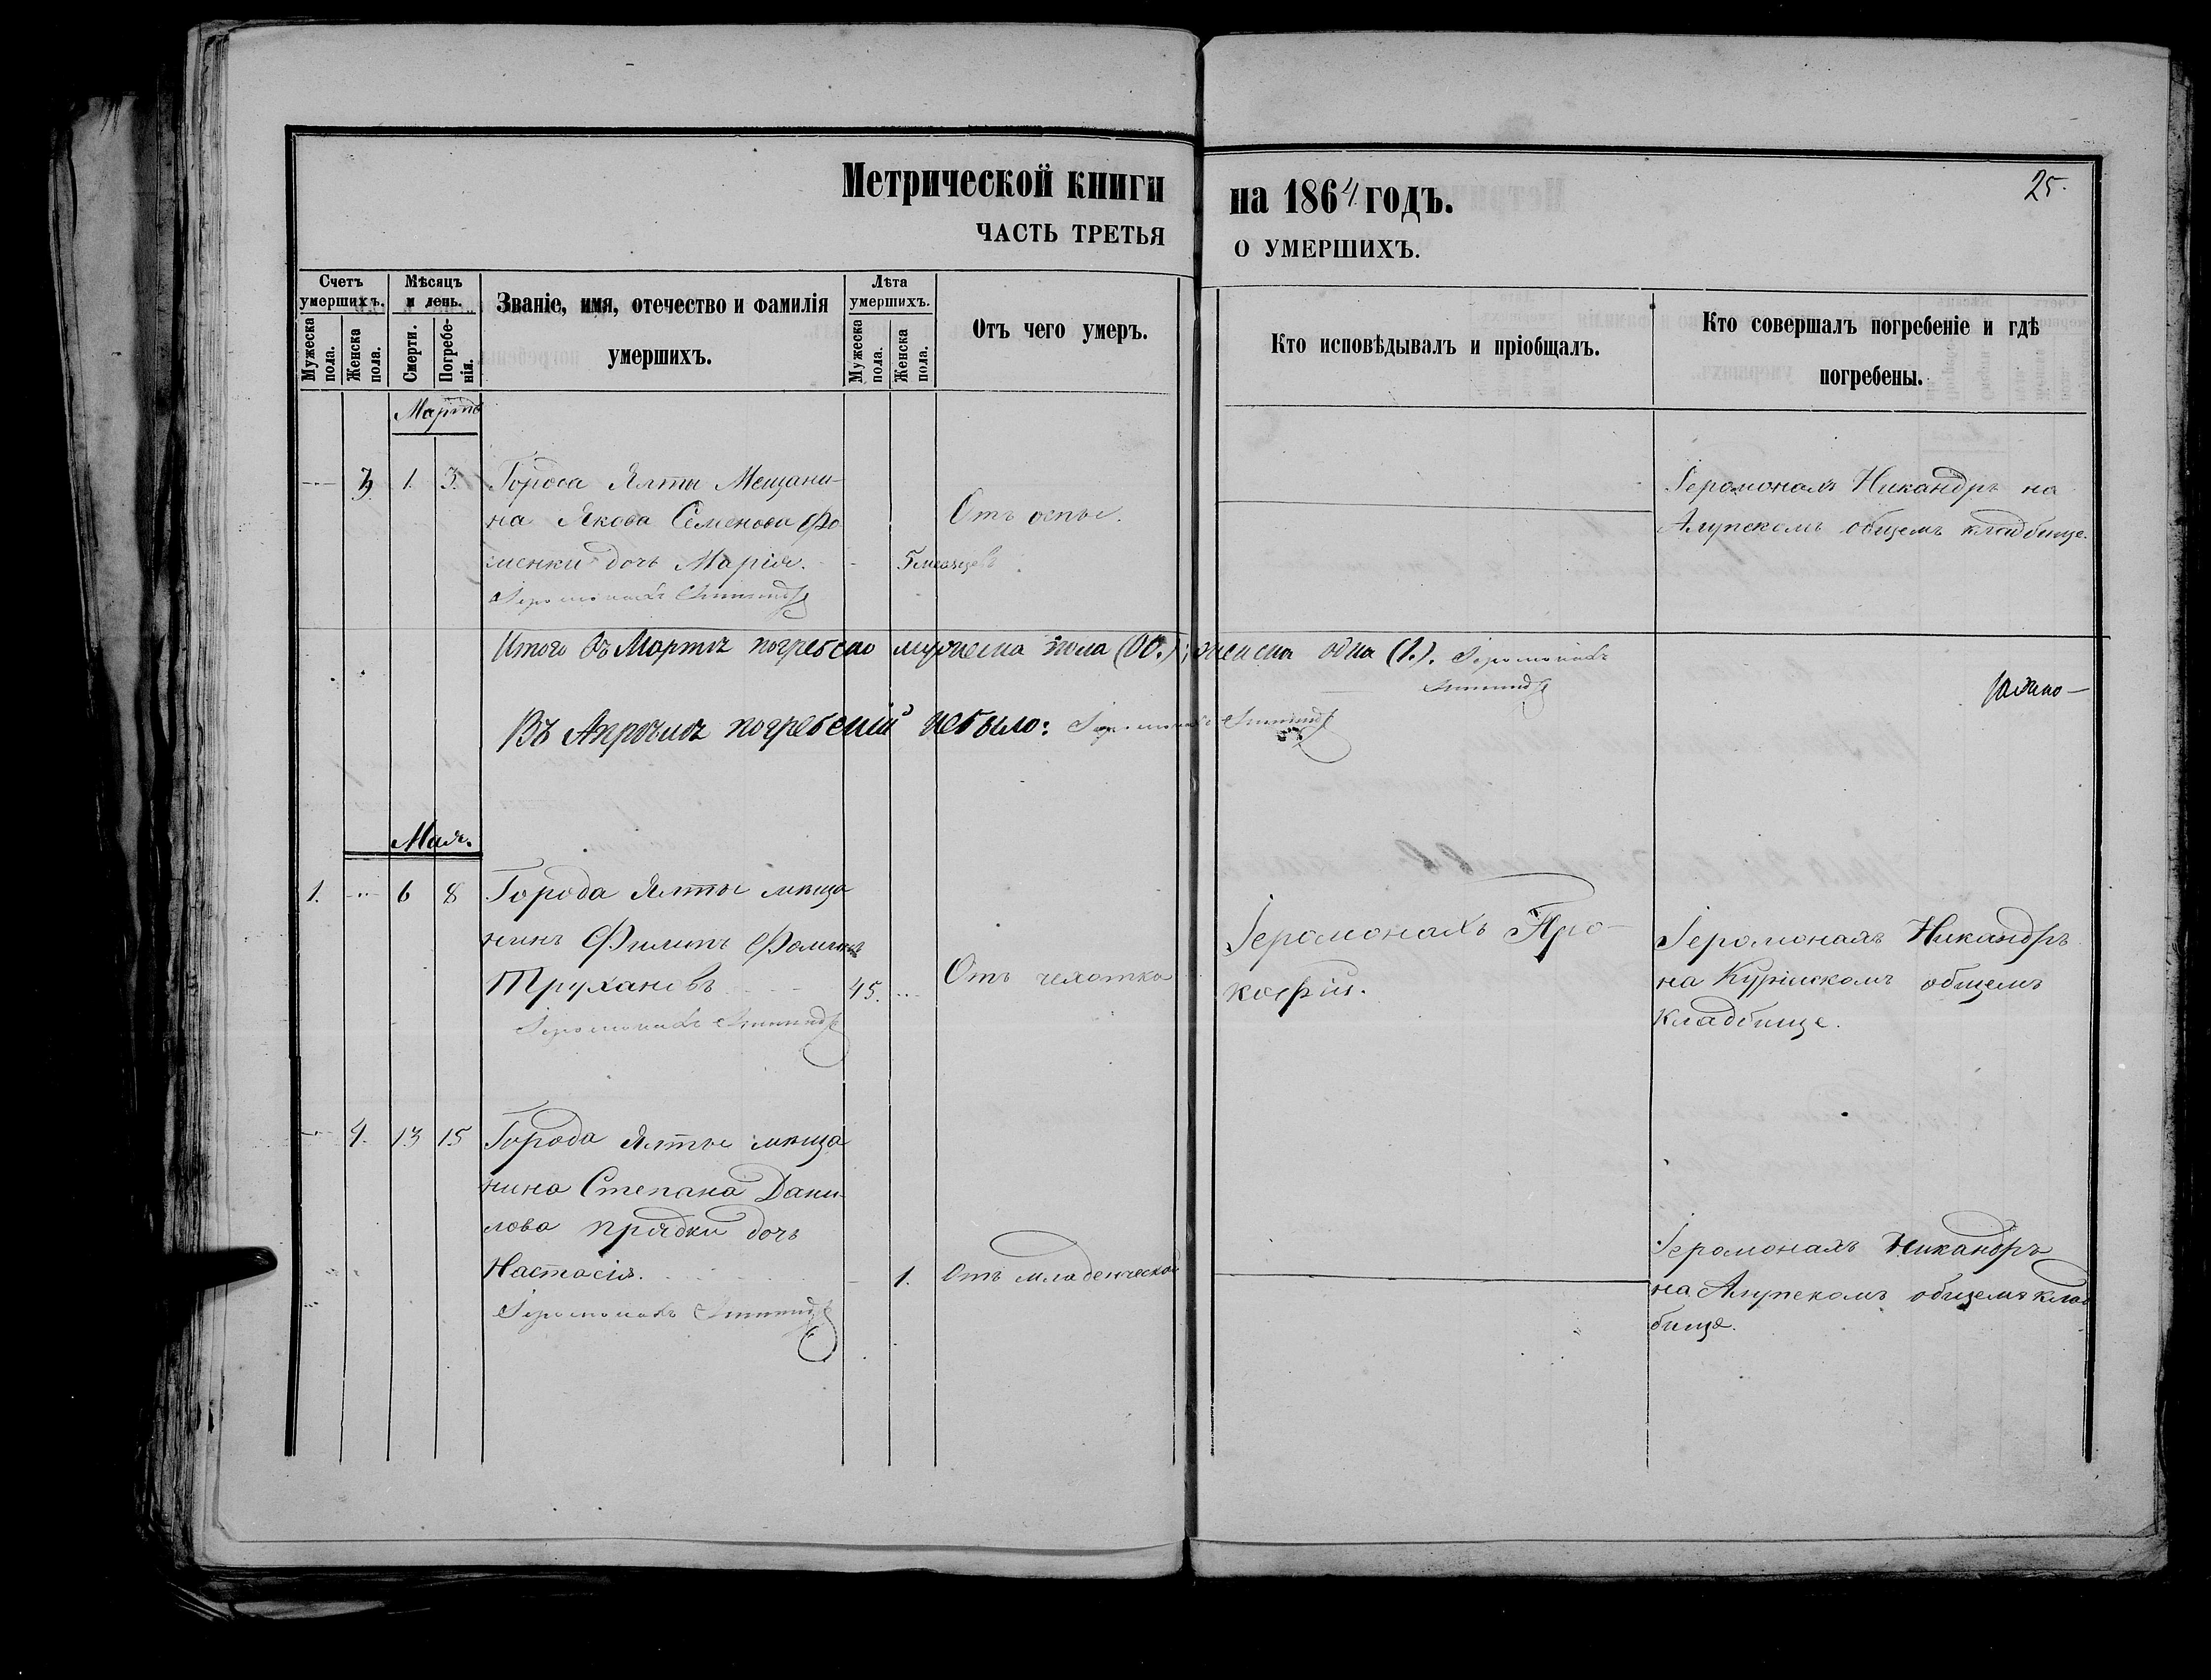 Метрической книги на 1864 годъ.
25.
ЧАСТЬ ТРЕТЬЯ О УМЕРШИХЪ.
Счетъ умершихъ.
Мужеска пола.
Женска пола.
Мѣсяцъ и день.
Смерти.
Погребе-нія.
Званіе, имя, отечество и фамилія
умершихъ.
Лѣта умершихъ.
Мужеска пола.
Женска пола.
Отъ чего умеръ.
Кто исповѣдывалъ и пріобщалъ.
Кто совершалъ погребеніе и гдѣ
погребены.
Мартъ
3. 1. 3. Города Ялты Мещани-
на Якова Семенова Фо
менки дочь Марія.
5 месяцевъ
Отъ оспы.
Іеромонахъ Никандръ на
Алупскомъ общемъ кладбище.
Іеромонахъ
Итого въ Мартѣ погребено мужеска пола (00.); женска одна (1.). Іеромонахъ
Въ Апрѣлѣ погребеній небыло: Іеромонахъ
Мая.
1. 6 8 Города Ялты мѣща
нинъ Филипъ Фоминъ
Трухановъ
45.
Отъ чехотка
Іеромонахъ Про-
кофій.
Іеромонахъ Никандръ
на общемъ
кладбище.
Іеромонахъ
4. 13 15 Города Ялты мѣща
нина Степана Дани
лова прядки дочь
Настасія.
1. Отъ младенческой
Іеромонахъ Никандръ
на Алупскомъ общемъ клад
бище.
Іеромонахъ